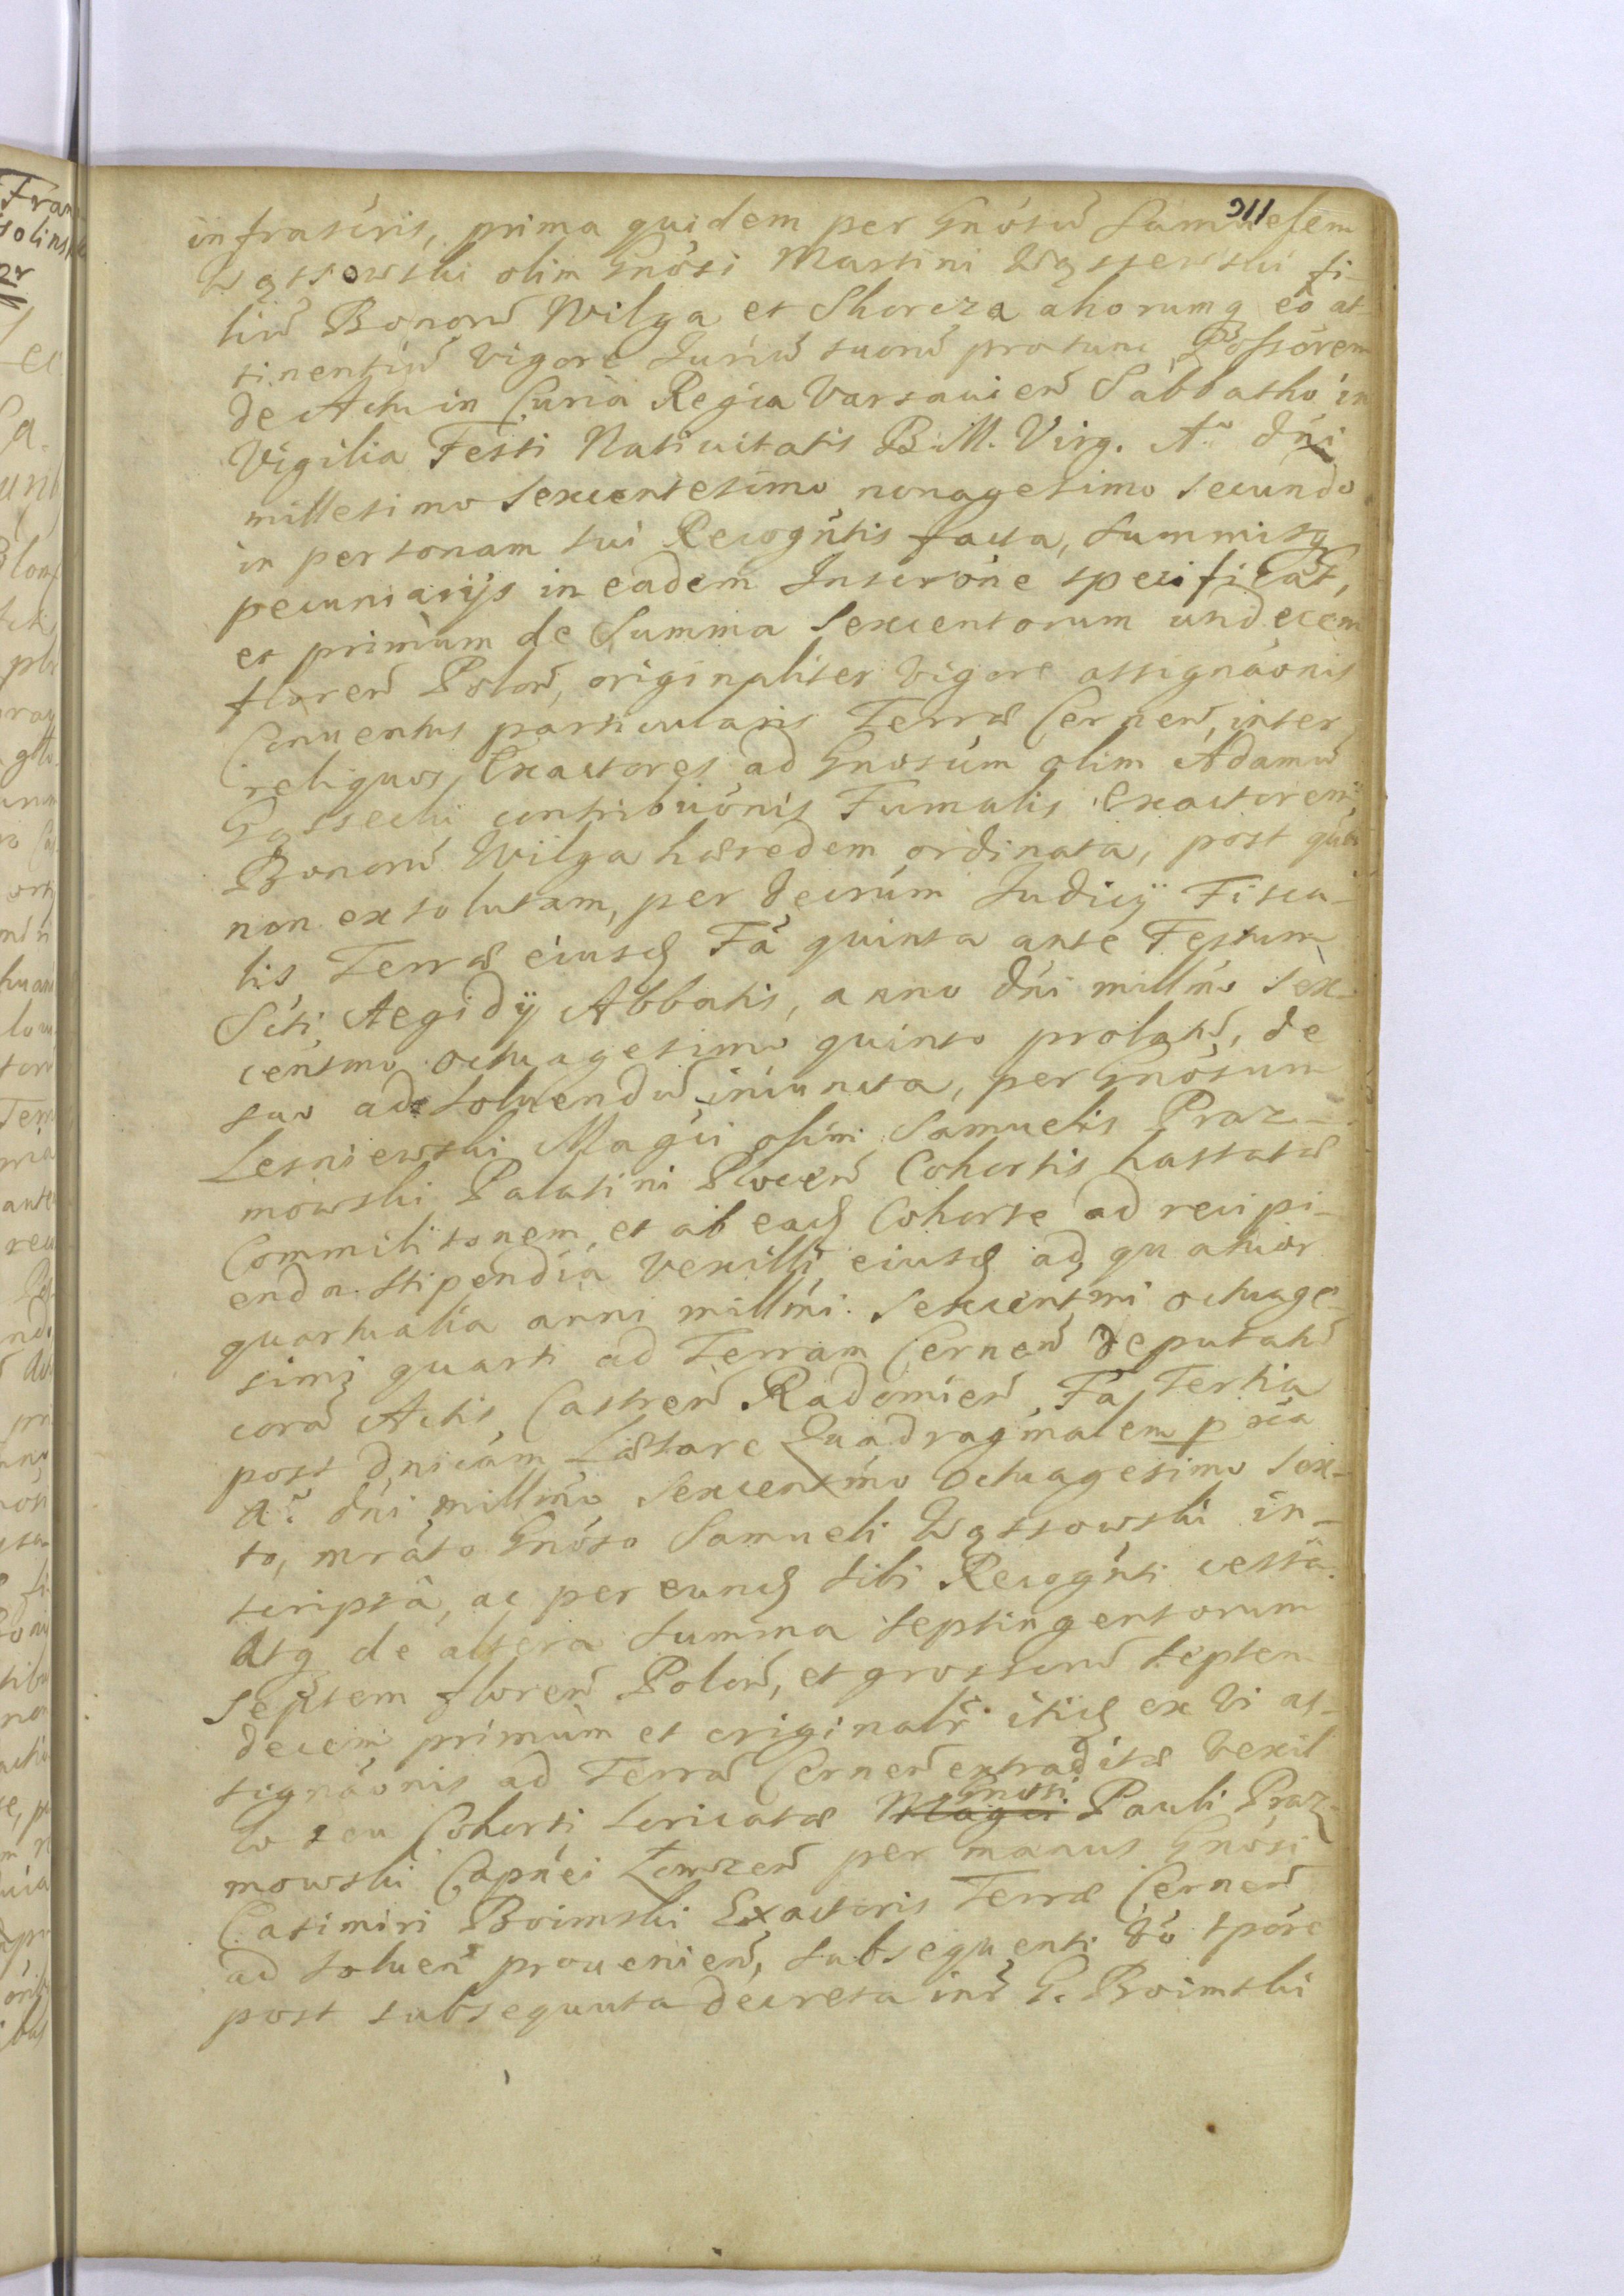 311
infrascris, prima quidem per Gnosũ Samuelem
Wąssowski olim Gnosi Martini Wąssowski fi-
liũ Bonorũ Wilga et Skorcza aliorumq eo at-
tinentiũ vigore Juriũ suorũ pro tunc Possorem
de Actu in Curia Regia Varsavien Sabbatho in
Vigilia Festi Nativitatis B. M. Virg. Aº dni
millesimo sexcentesimo nonagesimo secundo
in personam sui Recogntis facta, summisq
pecuniarijs in eadem Inscrone specificat,
et primum de Summa Sexcentorum undecem
floren Polon, originaliter vigore assignaonis
Conventus particularis Terræ Cernen, inter
reliquos Exactores ad Gnosum olim Adamũ
Gąssecki contribuonis Fumalis Exactorem,
Bonorũ Wilga hæredem ordinata, post
non exsolutam, per decrum Judicÿ Fisca-
lis Terræ eiusd Fa quinta ante Festum
Scti Aegidÿ Abbatis, anno dni millmo sex-
centmo octuagesimo quinto prolatũ, de
suo ad soluendũ iniuncta, per Gnosum
Lesniewski Magci olim Samuelis Praz-
mowski Palatini Plocen Cohortis hastatæ
Commilitonem, et ab ead Cohorte ad recipi-
enda stipendia vexilli eiusd ad quatuor
quartualia anni millmi sexcentmi octuage-
simi quarti ad Terram Cernen deputatũ
corã Actis Castren Radomien, Fa Tertia
post dnicam Lætare Quadragmalem pxia
Aº dni millmo sexcentmo octuagesimo sex-
to, mrato Gnoso Samueli Wąssowski in-
scripta, ac per eund sibi Recognti cessa.
Atq de altera summa septingentorum
septem floren Polon, et grossorũ septen
decem primum et originalr itid ex vi as-
signaonis ad Terrã Cernen extraditæ vexil
lo seu Cohorti loricatæ Magci Gnosi Pauli Praz-
mowski Capnei Łomzen per manus Gnosi
Casimiri Boimski Exactoris Terræ Cernen
ad soluen provenien, subsequenti vo tpore
post subsequuta decreta int G. Boimski